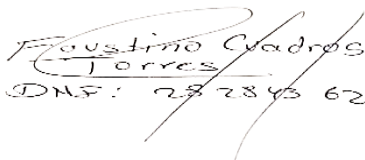 Faustino Cuadros
Torres
DNI: 28 2843 62